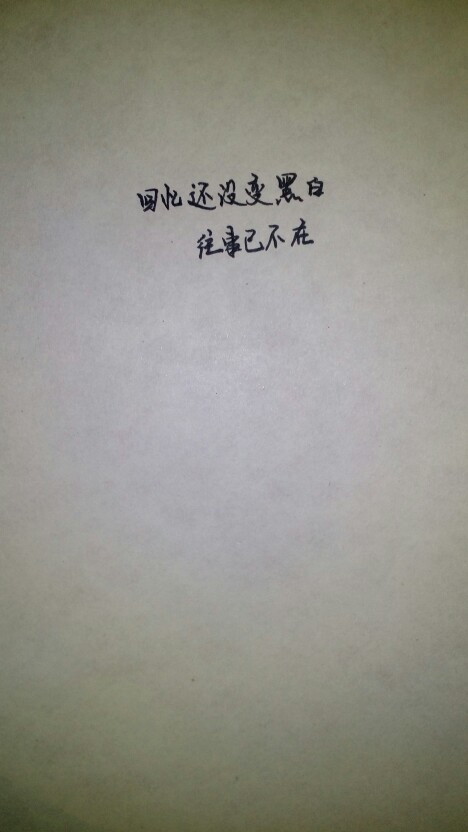 回忆还没变黑白
往事已不在